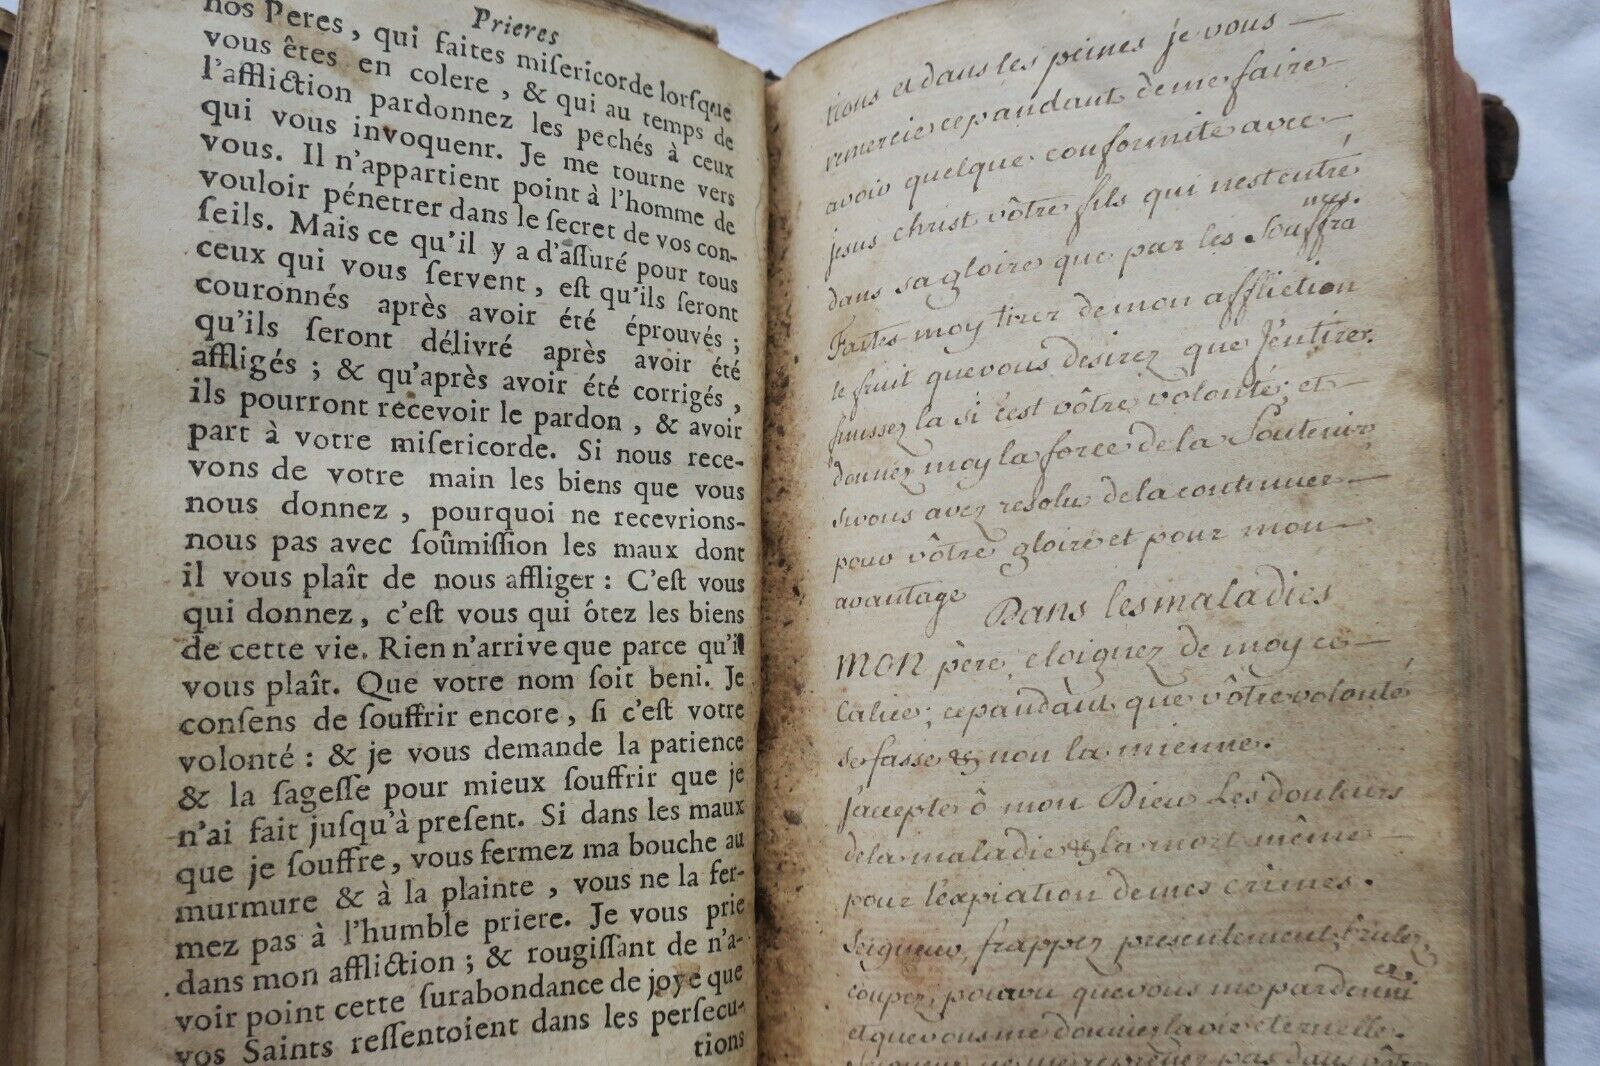 Prieres
nos Peres, qui faites miſericorde lorſque
vous êtes en colere, & qui au temps de
l'affliction pardonnez les pechés à ceux
qui vous invoquent. Je me tourne vers
vous. Il n'appartient point à l'homme de
vouloir pénetrer dans le ſecret de vos con-
ſeils. Mais ce qu'il y a d'aſſuré pour tous
ceux qui vous ſervent, eſt qu'ils ſeront
couronnés après avoir été éprouvés;
qu'ils ſeront délivré après avoir été
affligés; & qu'après avoir été corrigés,
ils pourront recevoir le pardon, & avoir
part à votre miſericorde. Si nous rece-
vons de votre main les biens que vous
nous donnez, pourquoi ne recevrions-
nous pas avec ſoûmiſſion les maux dont
il vous plaît de nous affliger: C'eſt vous
qui donnez, c'eſt vous qui ôtez les biens
de cette vie. Rien n'arrive que parce qu'il
vous plaît. Que votre nom ſoit beni. Je
conſens de ſouffrir encore, ſi c'eſt votre
volonté: & je vous demande la patience
& la ſageſſe pour mieux ſouffrir que je
n'ai fait juſqu'à preſent. Si dans les maux
que je ſouffre, vous fermez ma bouche au
murmure & à la plainte, vous ne la fer-
mez pas à l'humble priere. Je vous prie
dans mon affliction; & rougiſſant de n'a-
voir point cette ſurabondance de joye que
vos Saints reſſentoient dans les perſecu-
tions
tions et dans les peines je vous
remercie cepandant de me faire
avoir quelque conformité avec
jesus christ vôtre fils qui nest entré
dans sa gloire que par les Souffra
nces.
Faites moy tirer de mon affliction
le fruit que vous desirez que J'en tirer.
finissez la si c'est vôtre volonté; et
donnez moy la force de la Soutenir
si vous avez resolu de la continuer
pour vôtre gloire et pour mon
avantage
Dans les maladies
mon père, eloignez de moy ce
Calice; cepandant que vôtre volonté
se fasse & non la mienne.
J'accepte ô mon Dieu Les douleurs
de la maladie & la mort même
pour l'expiation de mes crimes.
Seigneur, frappez presentement, brulez,
coupez, pourvu que vous me pardonni
ez,
et que vous me donniez la vie eternelle.
Seigneur ne me reprenez pas dans vôtre